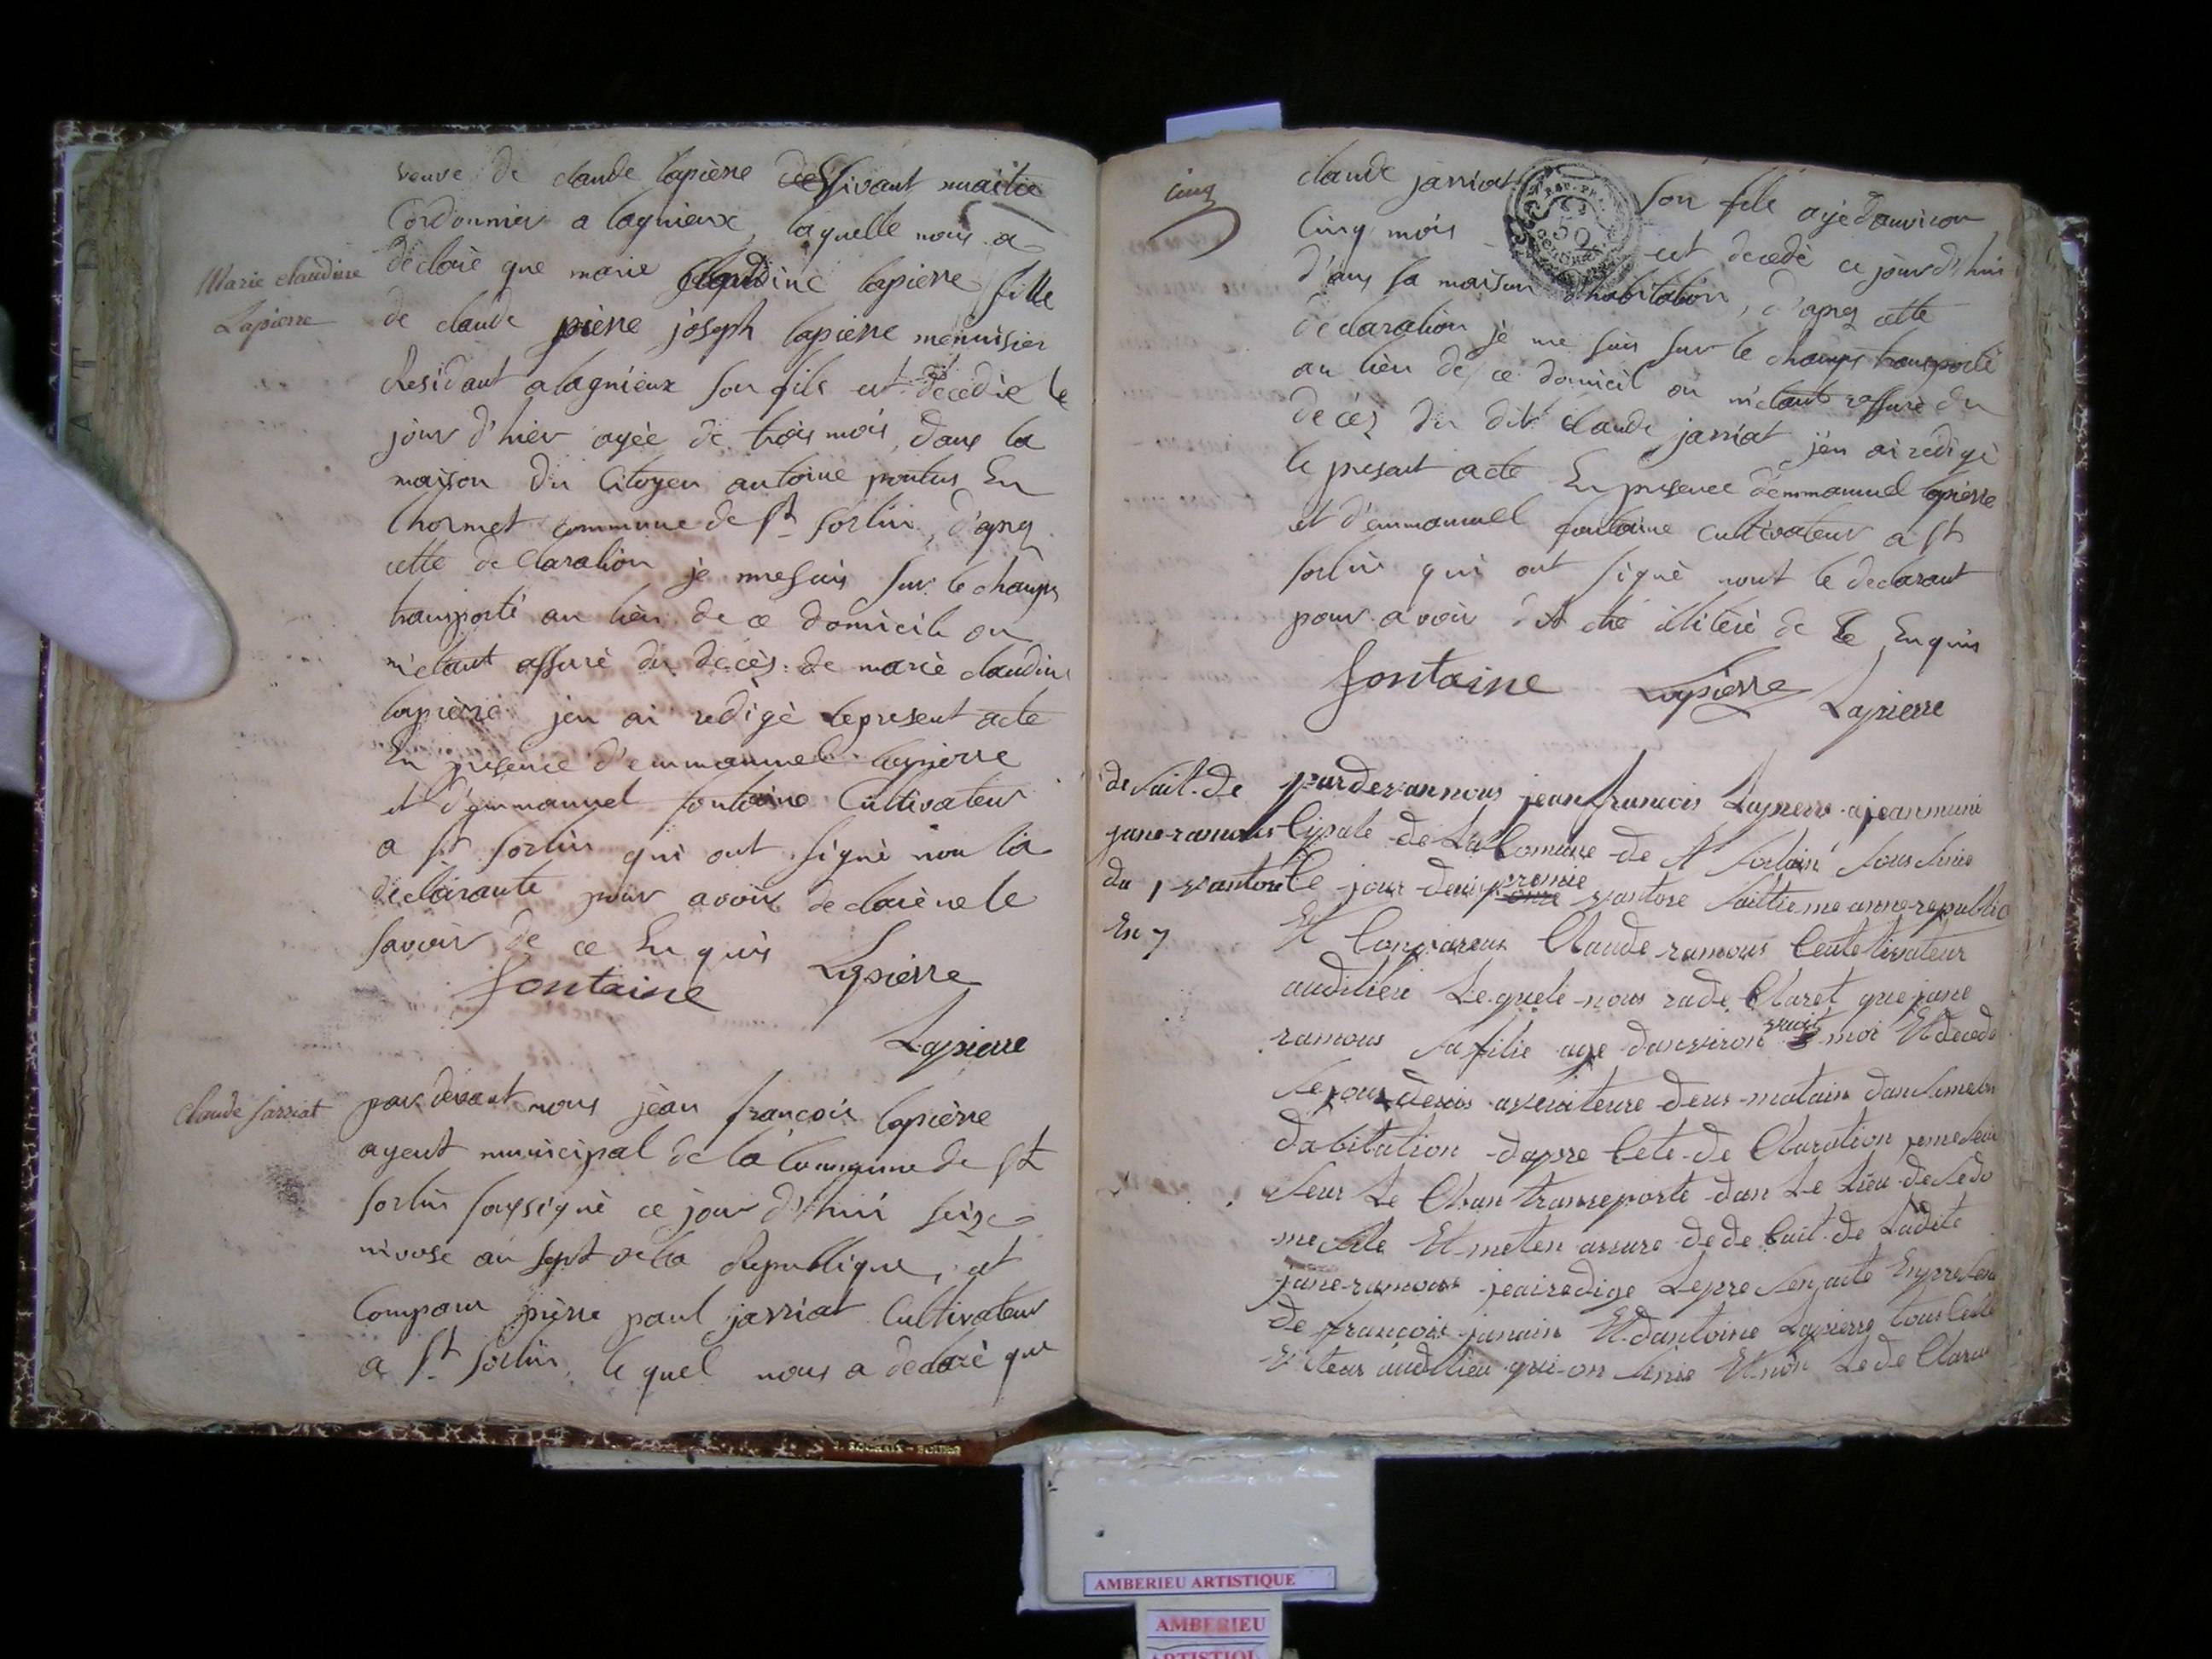 veuve de claude lapièrre vivant maître
Cordonnier a lagnieux, laquelle nous a
déclaré que marie claudine lapierre fille
Marie claudine
Lapierre
de claude pierre joseph lapierre menuisier
Residant a lagnieux son fils est décédée le
jour d'hier agée de trois mois, dans la
maison du Citoyen antoine pontus En
lhormet commune de St sorlin, d'apres
cette declaration je me suis sur le champs
transporté au lieu de ce domicile ou
m'etant assuré du décès de marie claudine
lapierre jen ai redigé le present acte
En presence d'emmanuel lapierre
et d'emmanuel fontaine Cultivateur
a St sorlin qui ont signé non la
déclarante pour avoir declaré ne le
savoir de ce Enquis
fontaine Lapierre
Lapierre
Claude Jarriat
pardevant nous jean françois lapierre
agent municipal de la Commune de St
sorlin soussigné ce jour d'hui seize
nivose an sept de la Republique, est
Comparu pierre paul jarriat Cultivateur
a St sorlin, le quel nous a declaré que
cinq
claude jarriat son fils agé d'anviron
Cinq mois est decedé ce jour d'hui
d'ans sa maison d'habitation, d'apres cette
declaration je me suis sur le champs transporté
au lieu de ce domicil ou m'etant rassuré du
décès du dit claude jarriat j'en ai redigé
le present acte En presence d'emmanuel lapierre
et d'emmanuel fontaine cultivateur a St
sorlin qui ont signé nont le declarant
pour avoir dit etre illiteré de ce Enquis
fontaine Lapierre Lapierre
de sait de
jane ramous
du 1 vantose
En 7
pardevannous jean francois Lapierre ajean muni
sipale de La Comune de St sorlain sous sinie
Ce jour deui premie vantose saitieme anne republic
Et Comparens Claude ramous Ceuletivateur
audilieu Lequele nous rade Claret que jane
ramous sa filie age danviron vuit moi Et decede
le jour deuis aseniteure deux matain dan sa meson
dabitation dapre Cete de Claration je me suis
seur Le Chan transeporte dan Le Lieu de sedo
mesile Et meten assure de de Cait de Ladite
jane ramous jeairedige Lepresen acte Enpresens
de francois janain Et dantoine Lapierre tous Ceule
tivateur audilieu qui on sinie Et non Le de Claran
AMBERIEU ARTISTIQUE
AMBERIEU